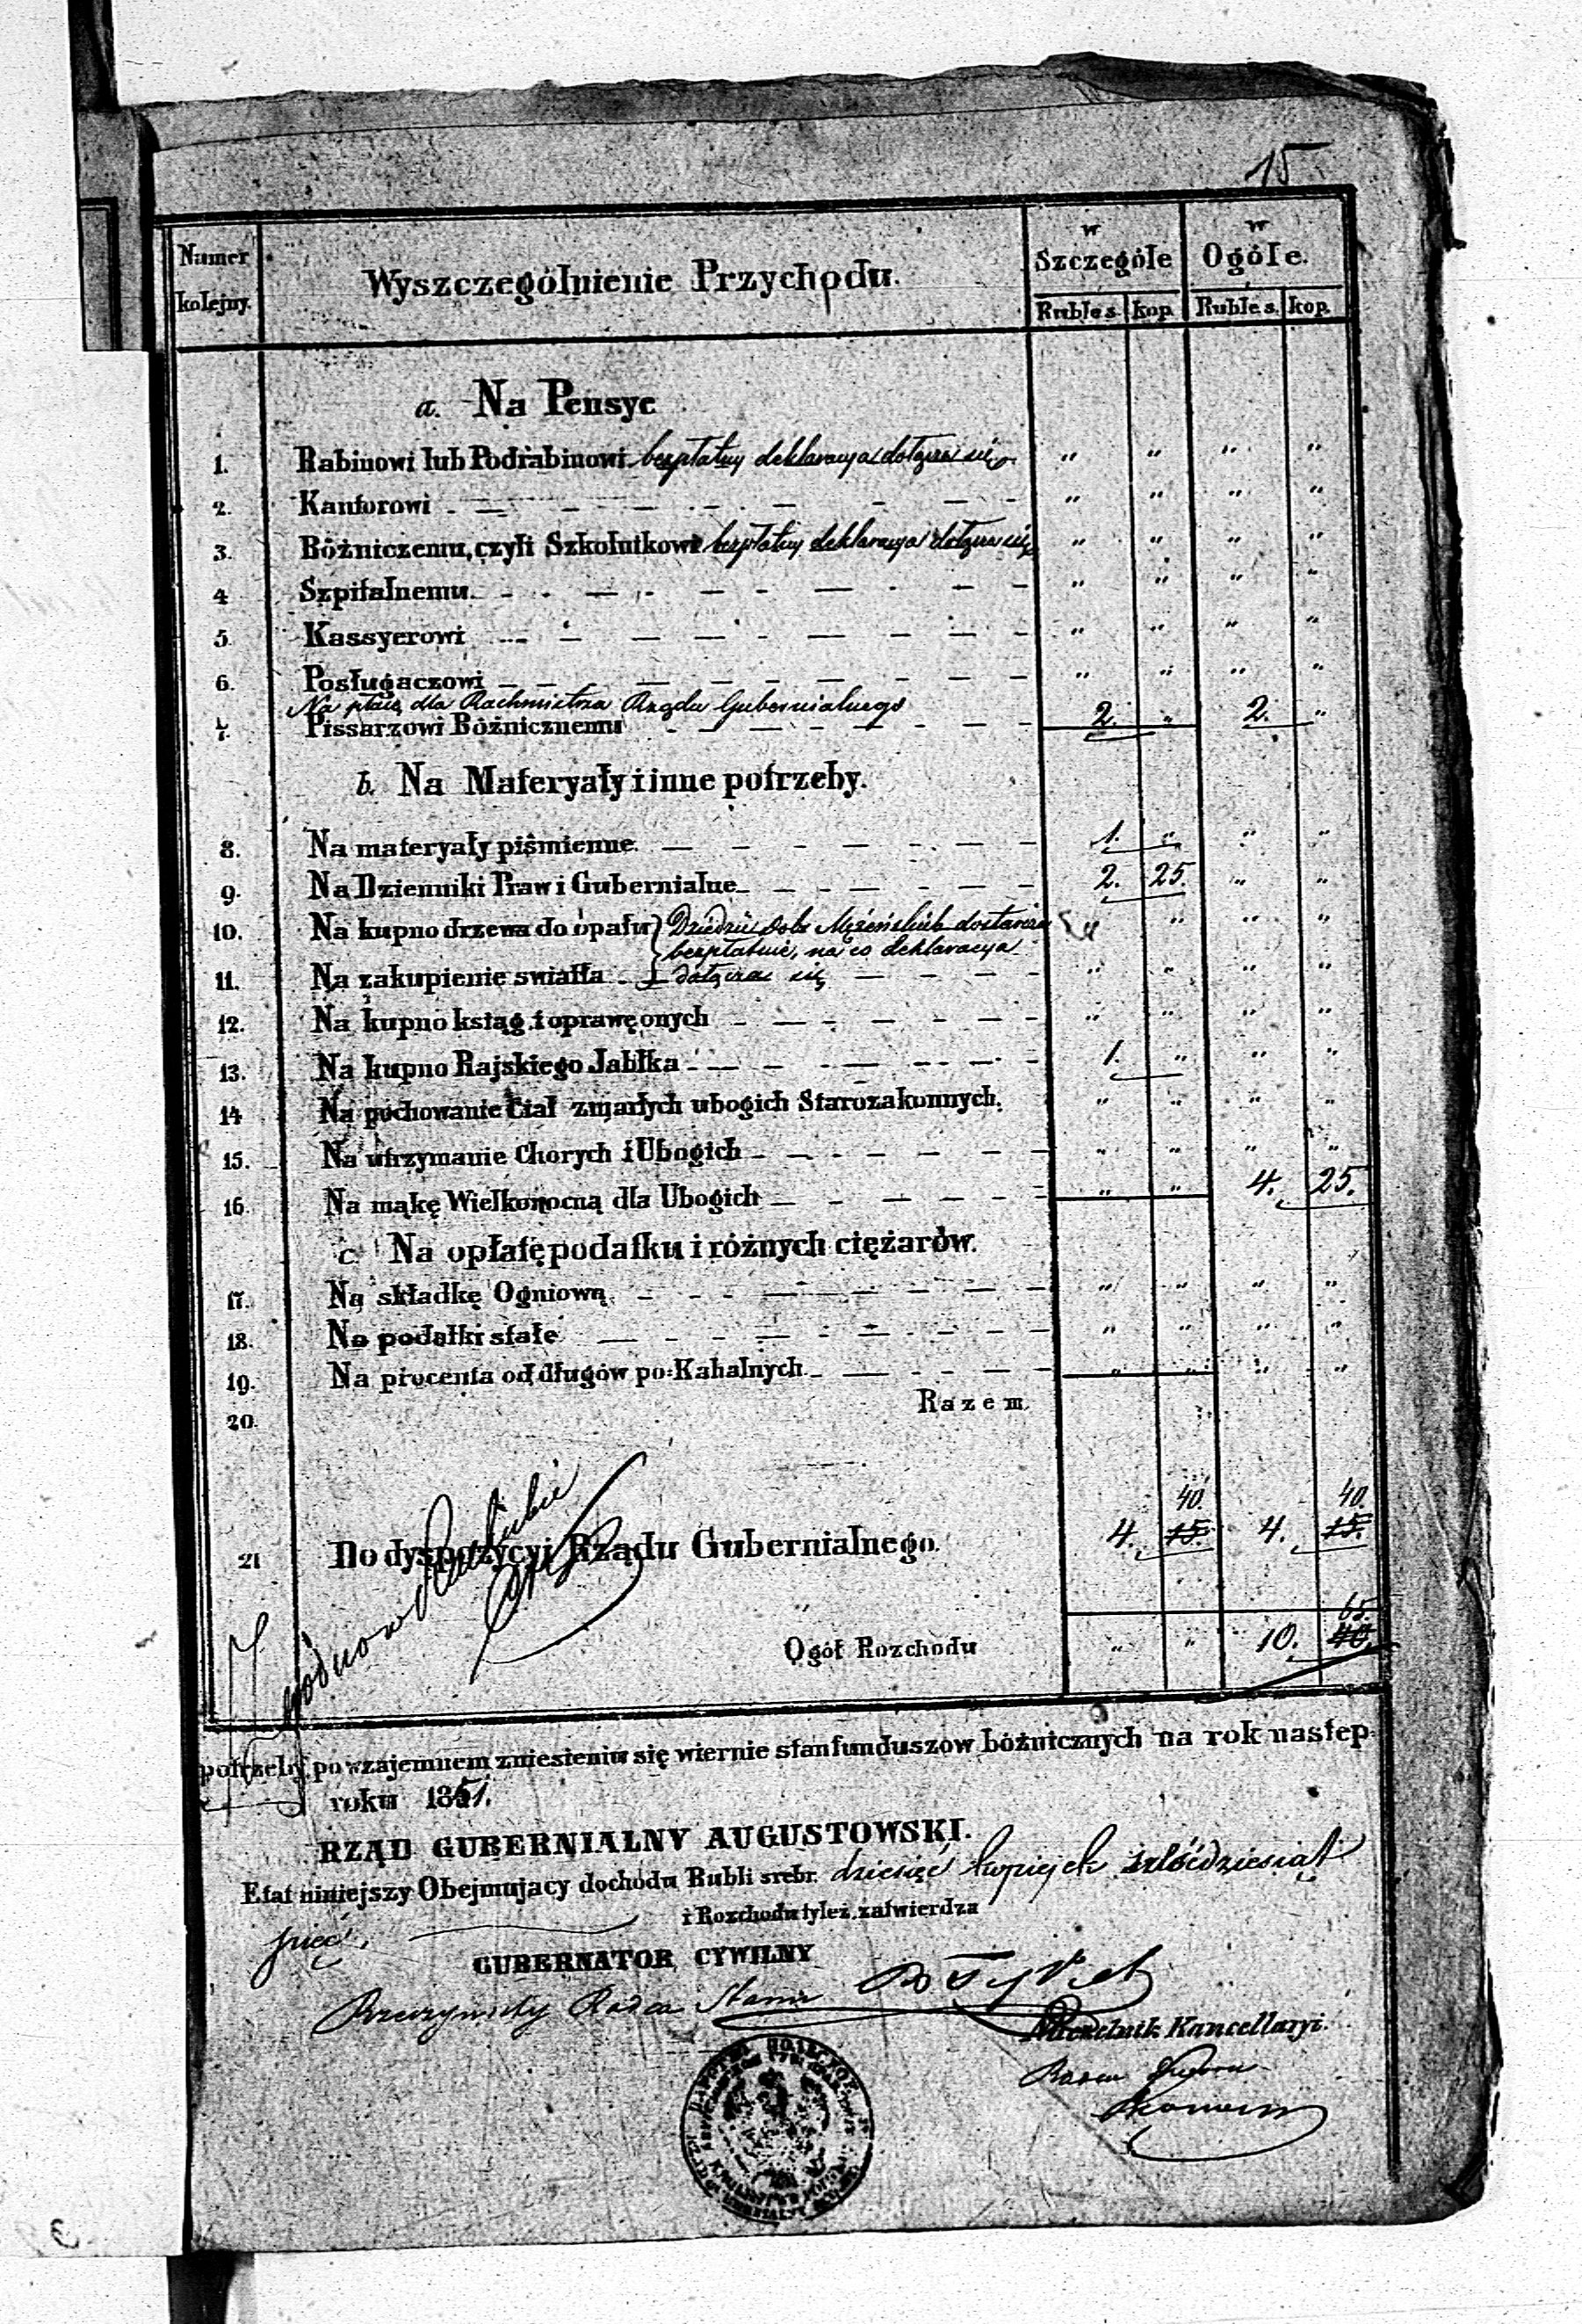 15
Numer kolejny.
Wyszczególnienie Przychodu.
w Szczególe
w Ogóle.
Ruble s. kop. Ruble s. kop.
a. Na Pensye
1. Rabinowi lub Podrabinowi bezpłatny deklaracya dołącza się „ „ „ „
2. Kantorowi „ „ „ „
3. Bóżniczemu, czyli Szkolnikowi bezpłatny deklaracya dołącza się „ „ „ „
4 Szpitalnemu „ „ „ „
5. Kassyerowi „ „ „ „
6. Posługaczowi „ „ „ „
Na płacę dla Rachmistrza Rządu Gubernialnego 2. „ 2. „
7. Pissarzowi Bóżnicznemu
b. Na Materyały i inne potrzeby.
8. Na materyały piśmienne 1. „ „ „
9. Na Dzienniki Praw i Gubernialne 2. 25. „ „
10. Na kupno drzewa do opału } Dziedzic Dóbr dostarcza „ „ „ „
bezpłatnie, na co deklaracya
11. Na zakupienie swiatła dołącza się „ „ „ „
12. Na kupno ksiąg i oprawę onych „ „ „ „
13. Na kupno Rajskiego Jabłka 1. „ „ „
14 Na pochowanie Ciał zmarłych ubogich Starozakonnych. „ „ „ „
15. Na utrzymanie Chorych i Ubogich „ „ „ „
16. Na mąkę Wielkonocną dla Ubogich „ „ 4. 25.
c Na opłatę podatku i różnych ciężarów.
17. Na składkę Ogniową „ „ „ „
18. Na podatki stałe „ „ „ „
19. Na procenta od długów po-Kahalnych „ „ „ „
20. Razem
40. 40.
21 Do dyspozycyi Rządu Gubernialnego. 4. 15. 4. 15.
65.
Ogół Rozchodu „ „ 10. 40.
potrzeby, po wzajemnem zniesieniu się wiernie stan funduszów bóżnicznych na rok nastep-
roku 1851.
RZĄD GUBERNIALNY AUGUSTOWSKI.
Etat niniejszy Obejmujący dochodu Rubli srebr. dziesięć kopiejek sześćdziesiąt
pięć. i Rozchodu tyleż, zatwierdza
GUBERNATOR CYWILNY
Rzeczywisty Radca Stanu
Naczelnik Kancellaryi.
Radca Dworu